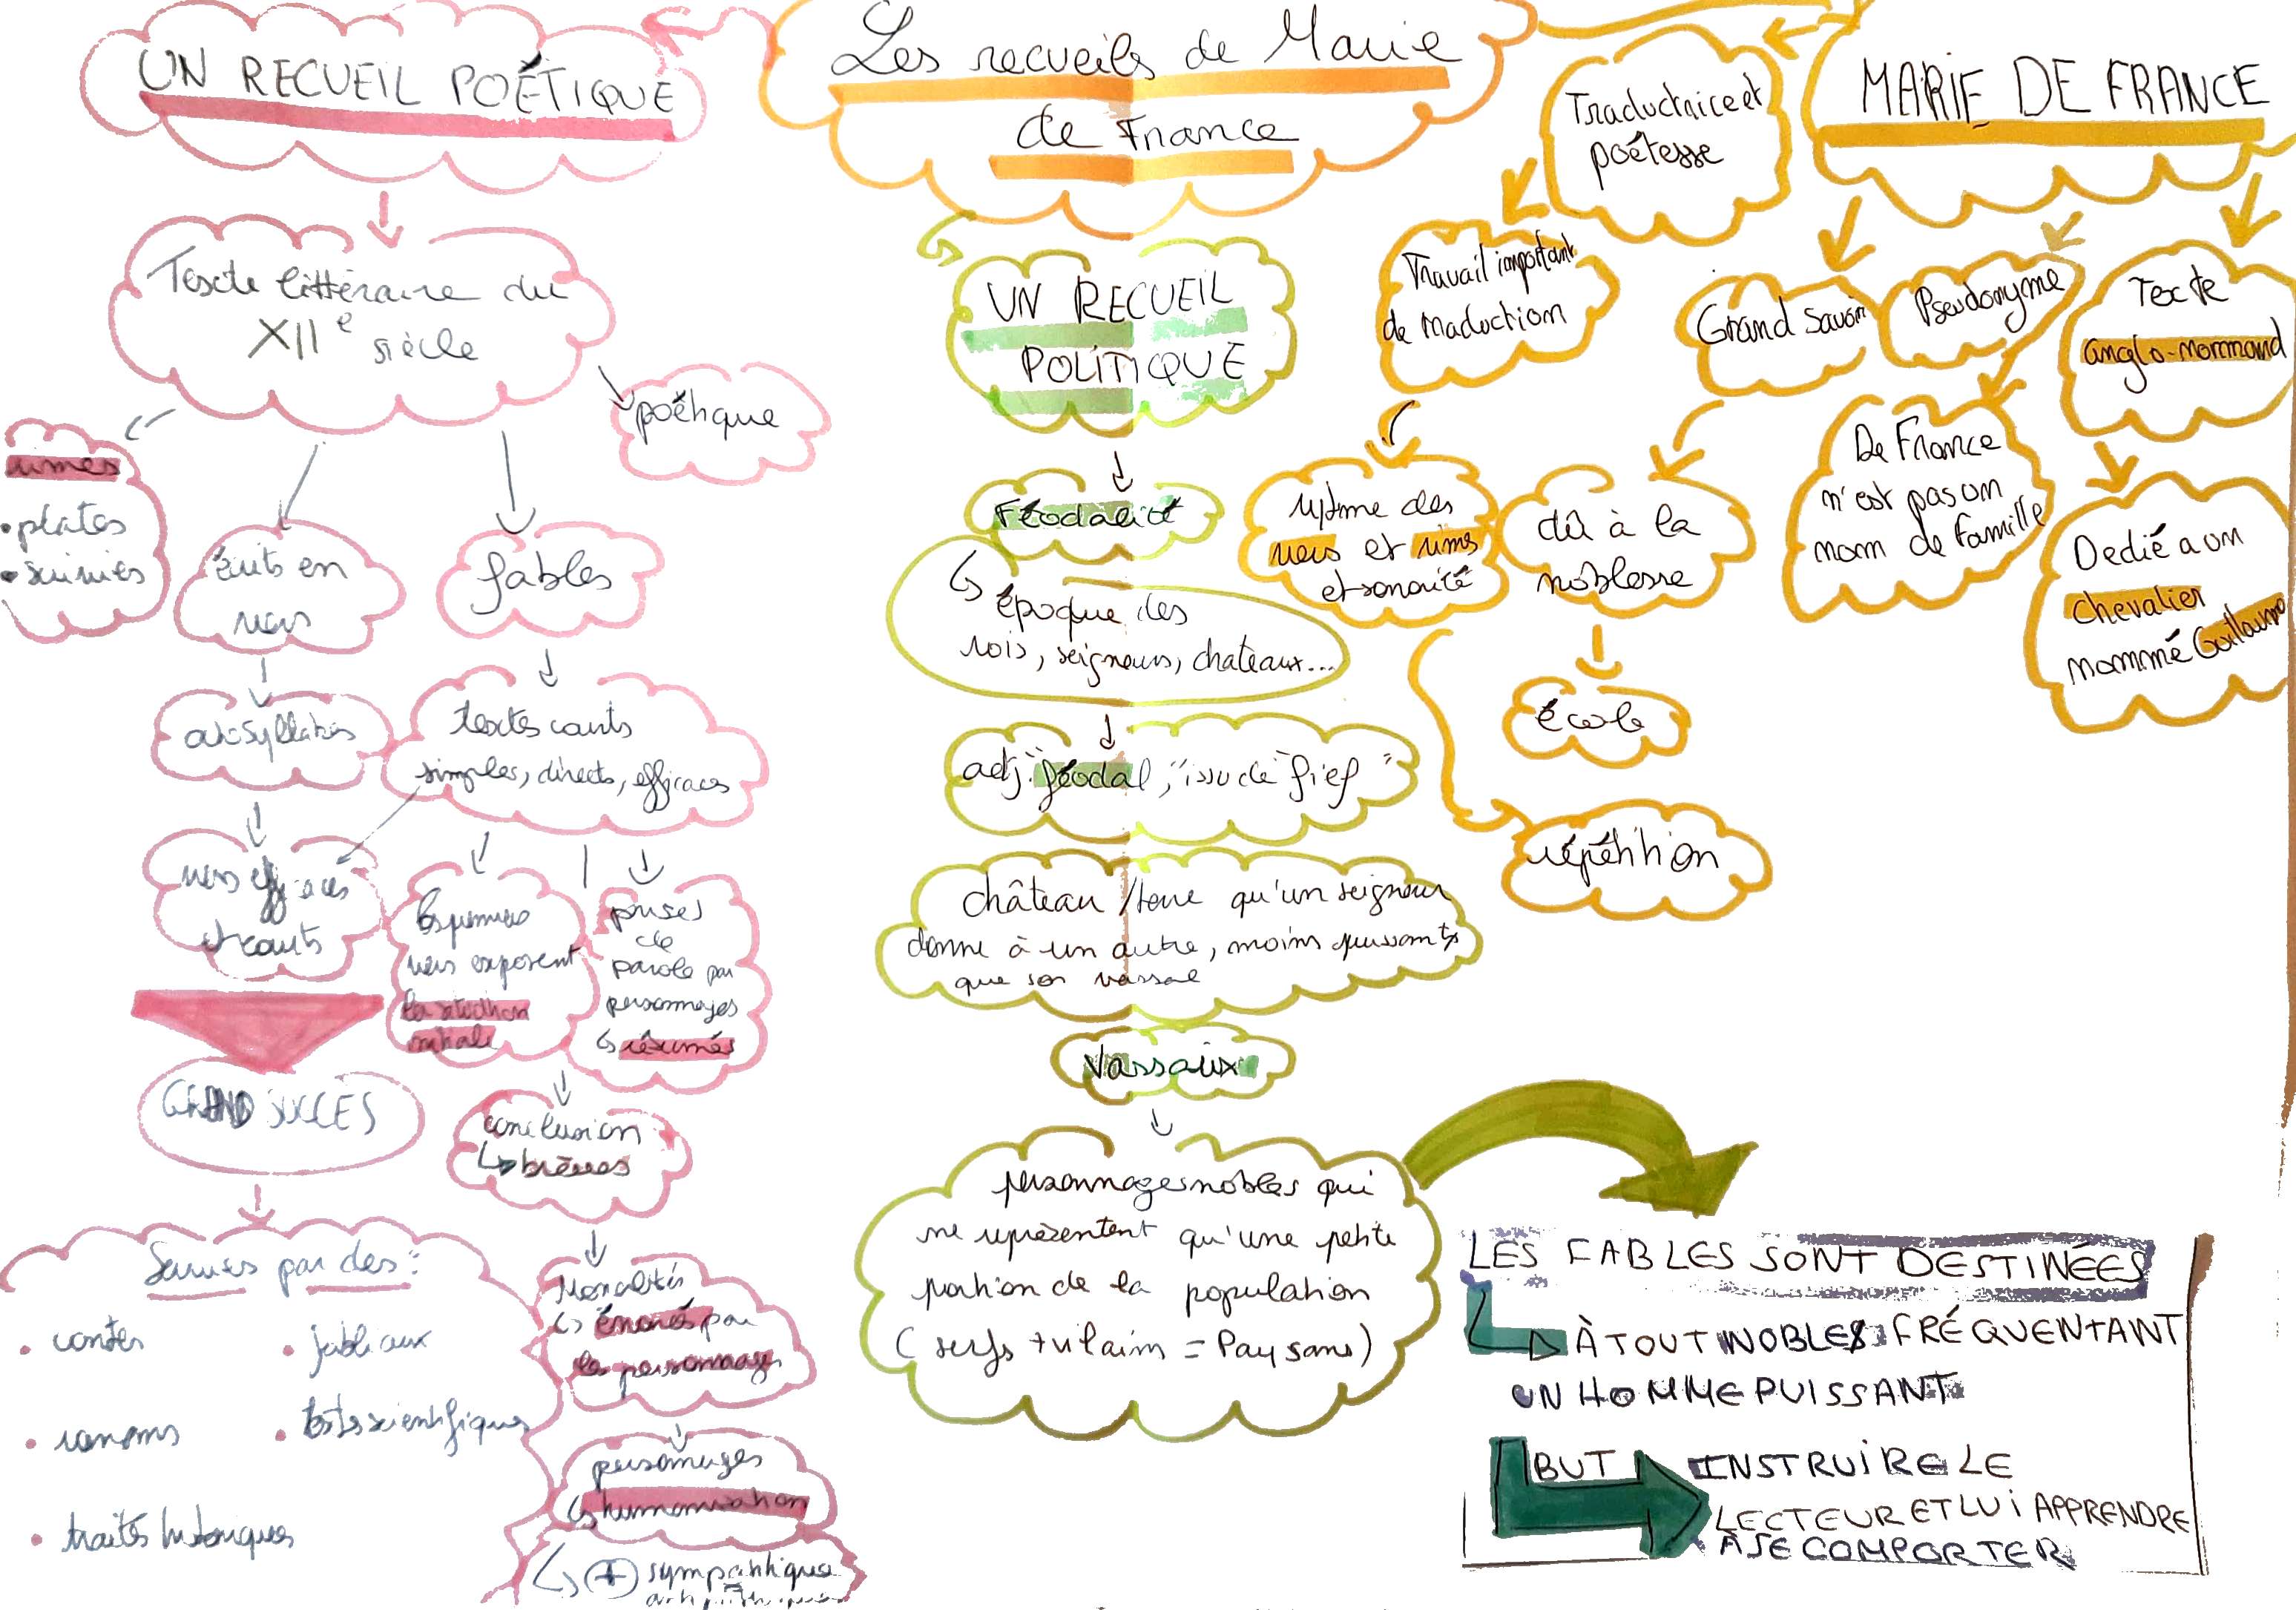 UN RECUEIL POÉTIQUE
Texte littéraire du
XIIe siècle
poétique
rimes
• plates
• suivies
écrits en
vers
fables
octosyllabes
textes courts
simples, directs, efficaces
vers efficaces
et courts
les premiers
vers exposent
la situation
initiale
prises
de
parole par
personnages
↳ résumés
GRAND SUCCÈS
conclusion
↳ brèves
Suivies par des :
• contes
• fabliaux
• romans
• textes scientifiques
• traités historiques
Moralités
↳ énoncés par
les personnages
personnages
↳ humanisation
↳ + sympathique
Les recueils de Marie
de France
UN RECUEIL
POLITIQUE
Féodalité
↳ époque des
rois, seigneurs, chateaux...
adj. "féodal", "issu de fief"
château / terre qu'un seigneur
donne à un autre, moins puissant
que son vassal
Vassaux
personnages nobles qui
ne représentent qu'une petite
portion de la population
(serfs + vilains = Paysans)
MARIE DE FRANCE
Traductrice et
poétesse
Travail important
de traduction
rytme des
vers et rimes
et sonorité
répétition
Grand Savoir
dû à la
noblesse
école
Pseudonyme
De France
n'est pas un
nom de famille
Texte
anglo-normand
Dedié a un
chevalier
nommé Guillaume
LES FABLES SONT DESTINÉES
À TOUT NOBLES FRÉQUENTANT
UN HOMME PUISSANT
BUT INSTRUIRE LE
LECTEUR ET LUI APPRENDRE
À SE COMPORTER